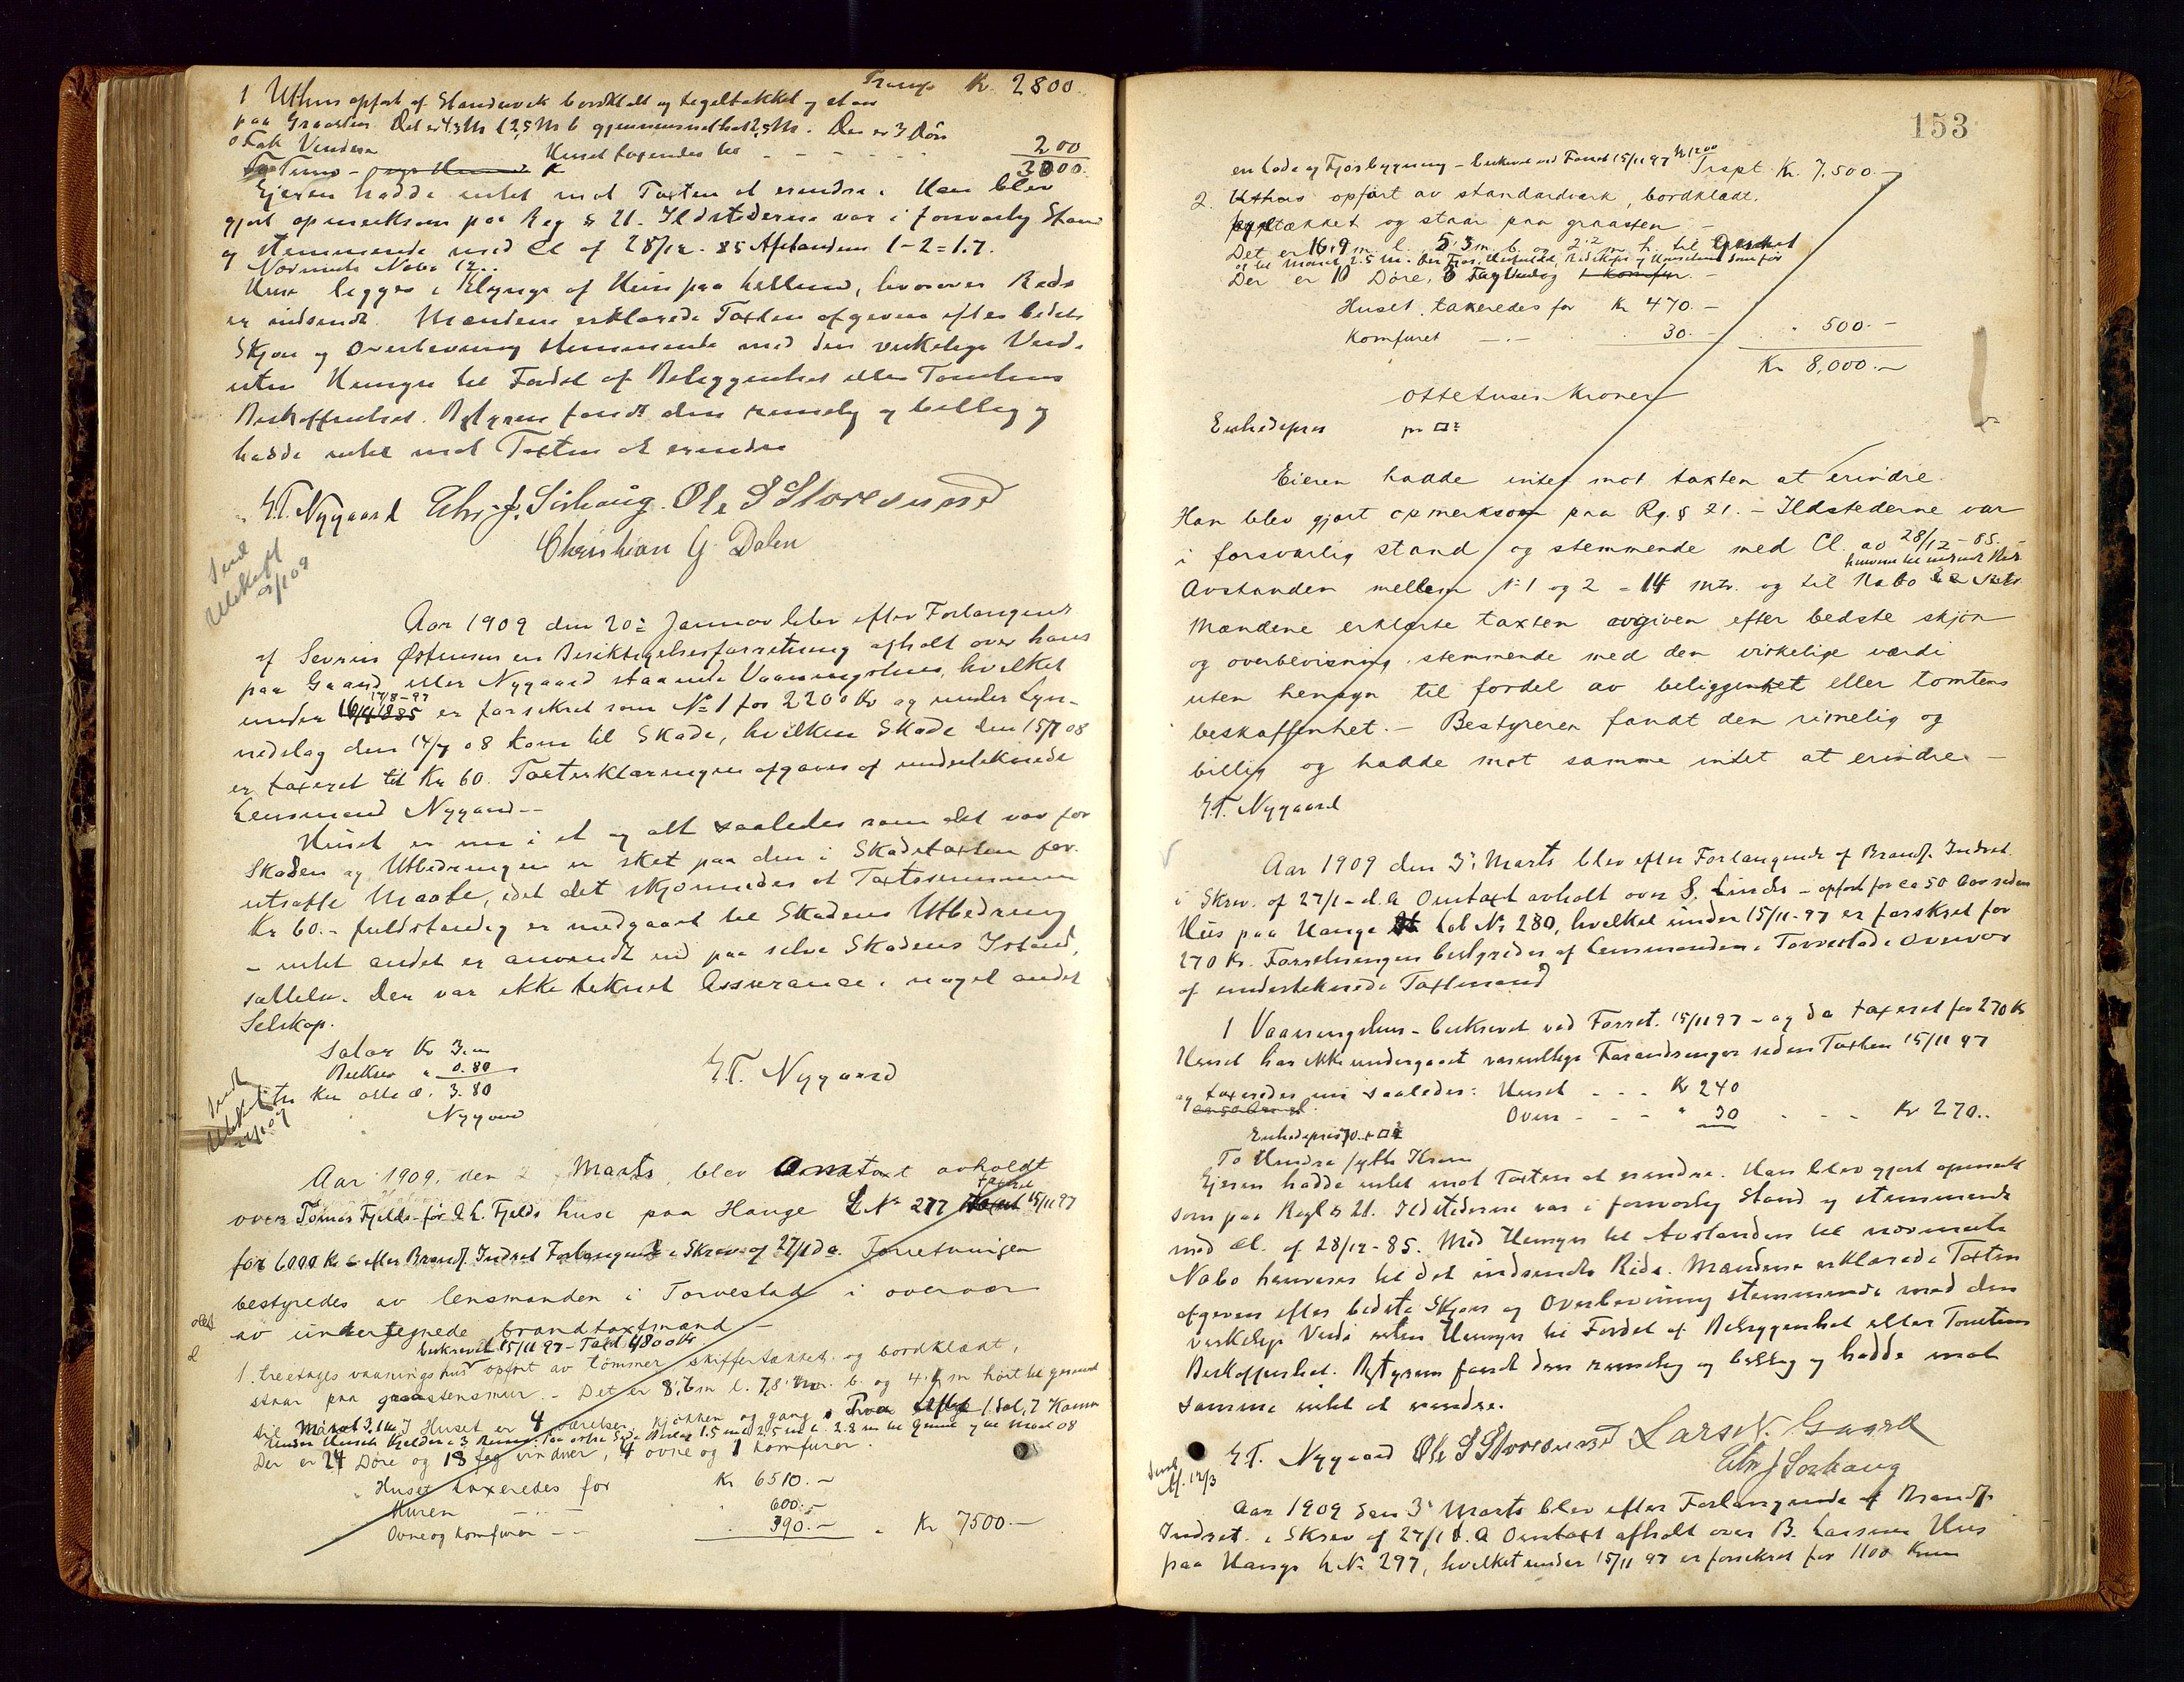 Transp Kr 2800
1 Uthus opført af Standerverk bordklædt og tegltækket og staar
paa Graasten Det er 4,3 M l 2,5 M b gjennemsnitshøi 2,5 M. Der er 3 Døre
0 Fak Vinduer
Huset taxeredes til - - - - - 200
3000
Eieren hadde intet mod Taxten at erindre. Han blev
gjort opmerksom paa Reg § 21. Ildstederne var i forsvarlig Stand
og stemmende med Cl af 28/12-85 Afstanden 1-2=1.7.
Nærmeste Nabo 12..
Huse ligger i Klynge af Huse paa hellum, hvorover Rids
er indsendt. Mændene erklærede Taxten afgiven efter bedste
Skjøn og Overbevisning stemmende med den virkelige Verdi
uten Hensyn til Fordel af Beliggenhed eller Tomtens
Beskaffenhet. Bestyreren fandt den rimelig og billig og
hadde intet mod Taxten at erindre
E.T. Nygaard Chr. J. Sørhaug. Ole S Storesund
Christian G. Dalen
Send
Utskrift
2/1 09
Aar 1909 den 20de Januar blev efter Forlangende
af Severin Østensen en Besiktigelsesforretning afholdt over hans
paa Gaard eller Nygaard staaende Vaaningshus, hvilket
17/8-97
under 16/4 1885 er forsikret som No 1 for 2200 Kr og under Lyn-
nedslag den 14/7 08 kom til Skade, hvilken Skade den 15/7 08
er taxeret til Kr 60. Taxterklæringen afgaves af undertegnede
Lensmand Nygaard--
Huset er nu i et og alt saaledes som det var før
Skaden og Utbedringen er sket paa den i Skadetaxten for-
utsatte Maate, idet det skjønnedes at Taxtsummen
Kr 60.- fuldstændig er medgaaet til Skadens Utbedring
- intet andet er anvendt end paa selve Skadens Istand-
sættelse. Der var ikke tegnet Assurance i noget andet
Selskap.
Salær Kr 3.00
Beskr " 0.80
Tre Kr otte ø. 3.80
Nygaard
E.T. Nygaard
Send
Utskrift
Aar 1909, den 2 Marts, blev Omtaxt avholdt
over Tomas Fjelds - før L. L. Fjelds huse paa Hauge L No 277 taxeret 15/11 97
for 6000 Kr - efter Brandf. Indret Forlangende i Skriv af 27/1 d a. Forretningen
bestyredes av lensmanden i Torvestad i overvær
av undertegnede brandtaxtmænd -
beskrevet 15/11 97 - Taxt 4800 Kr.
1. treetages vaaningshus opført av tømmer, skiffertækket og bordklædt,
staar paa graastensmur. - Det er 8,6 m l. 7,8 m. b. og 4. m høit til gesims
til Mønet 3.1 m I Huset er 4 værelser, kjøkken og gang, 1 Sal, 7 Kamre
Der er 24 Døre og 18 fag vinduer, 4 ovne og 1 komfurer.
Huset taxeredes for Kr 6510.-
Muren - .. - 600.-
Ovne og komfurer - - 390.- " Kr 7500.-
153
en Lade og Fjøsbygning - beskrevet ved Forret 15/11 97 Kr 1200 Trspt Kr. 7,500.-
2. Uthus opført av standardverk, bordklædt,
tegltækket og staar paa graasten -
Det er 16.9 m. l. 5.3 m. b. og 2.2 m h. til Gesimset
Der er 10 Døre, 3 Fag Vinduer 1 komfur. -
Huset taxeredes for Kr 470.-
Komfuret -.- 30.- " 500.-
Kr 8,000.-
Ottetusen Kroner
Enhedspris pr □m
Eieren hadde intet mot taxten at erindre.
Han blev gjort opmerksom paa Rg. § 21. - Ildstederne var
i forsvarlig stand og stemmende med Cl. av 28/12-85. -
henvises til indsendt Rids
Avstanden mellem No 1 og 2 = 14 mtr. og til Nabo
Mændene erklærte taxten avgiven efter bedste skjøn
og overbevisning, stemmende med den virkelige værdi
uten hensyn til fordel av beliggenhet eller tomtens
beskaffenhet. - Bestyreren fandt den rimelig og
billig og hadde mot samme intet at erindre. -
E.T. Nygaard
Aar 1909 den 3. Marts blev efter Forlangende af Brandf. Indret.
i Skriv. af 27/1 - d.a Omtaxt avholdt over S. Linds - opført for ca 50 Aar siden
Hus paa Hauge Lab No 280, hvilket under 15/11-97 er forsikret for
270 Kr. Forretningen bestyredes af Lensmanden i Torvestad i Overvær
af undertegnede Taxtmænd
1 Vaaningshus - beskrevet ved Forret. 15/11 97 - og da taxeret for 270 Kr
Huset har ikke undergaaet væsentlige Forandringer siden Taxten 15/11 97
og taxeredes nu saaledes: Huset - - - Kr 240
Oven - - - " 30 - - - Kr 270..
Enhedspris 70.. pr □m
To Hundre sytti Kroner
Ejeren hadde intet mod Taxten at erindre. Han blev gjort opmerk-
som paa Regl § 21. Ildstederne var i forsvarlig Stand og stemmende
med Cl. af 28/12-85. Med Hensyn til Avstanden til nærmeste
Nabo henvises til det indsendte Rids. Mændene erklærede Taxten
afgiven efter bedste Skjøn og Overbevisning stemmende med den
virkelige Verdi uten Hensyn til Fordel af Beliggenhet eller Tomtens
Beskaffenhet. Bestyreren fandt den rimelig og billig og hadde mod
samme intet at erindre.
E.T. Nygaard Ole S Storesund Lars N. Gaard
Chr J Sørhaug
Send
Af. 12/3
Aar 1909 den 3. Marts blev efter Forlangende af Brandf.
Indret. i Skriv af 27/1 d.a Omtaxt afholdt over B. Larsens Hus
paa Hauge L No 297, hvilket under 15/11 97 er forsikret for 1100 Kroner